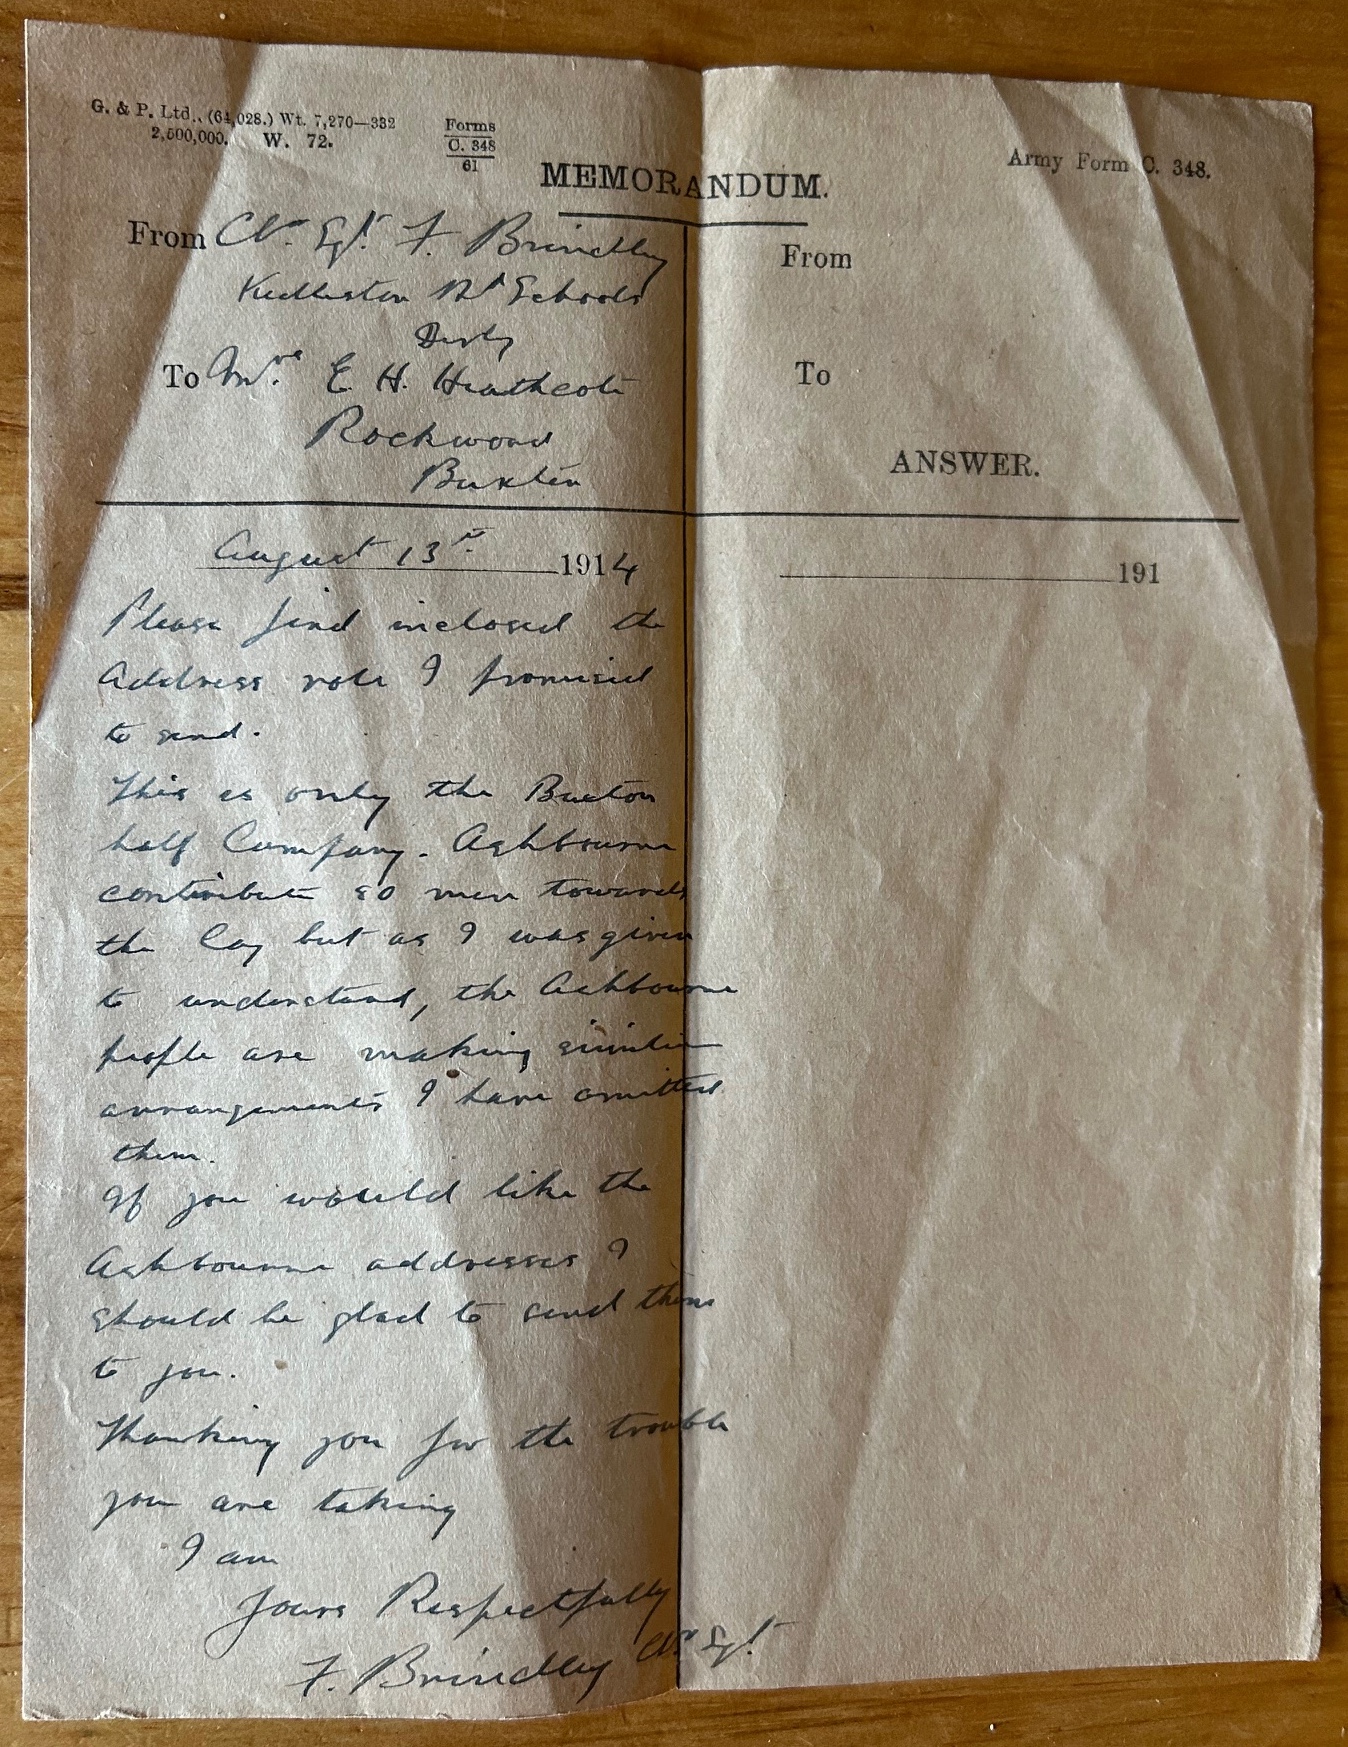 G. & P. Ltd., (64,028.) Wt. 7,270—332
2,500,000. W. 72.
Forms
C. 348
61
Army Form C. 348.
MEMORANDUM.
From Clr. Sgt. F. Brindley
Kedleston Rd Schools
Derby
To Mrs. E. H. Heathcote
Rockwood
Buxton
August 13th 1914
Please find inclosed the
Address role I promised
to send.
This is only the Buxton
half Company. Ashbourne
contribute 50 men towards
the Coy but as I was given
to understand, the Ashbourne
people are making similar
arrangements I have omitted
them.
If you would like the
Ashbourne addresses I
should be glad to send them
to you.
Thanking you for the trouble
you are taking
I am
Yours Respectfully
F. Brindley Clr Sgt
From
To
ANSWER.
191